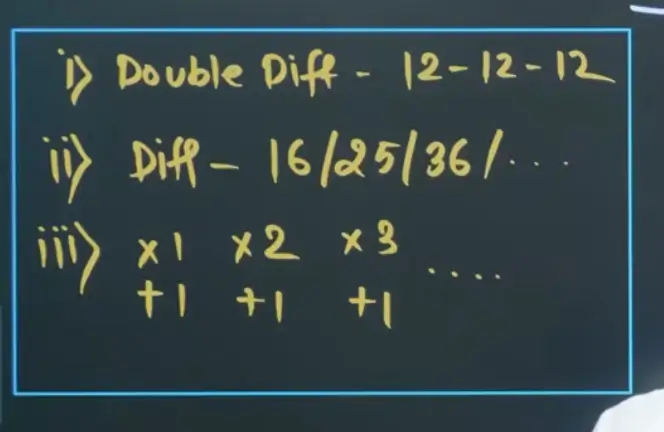 i) Double Diff - 12-12-12
ii) Diff - 16/25/36/...
iii) x1 x2 x3 ....
+1 +1 +1